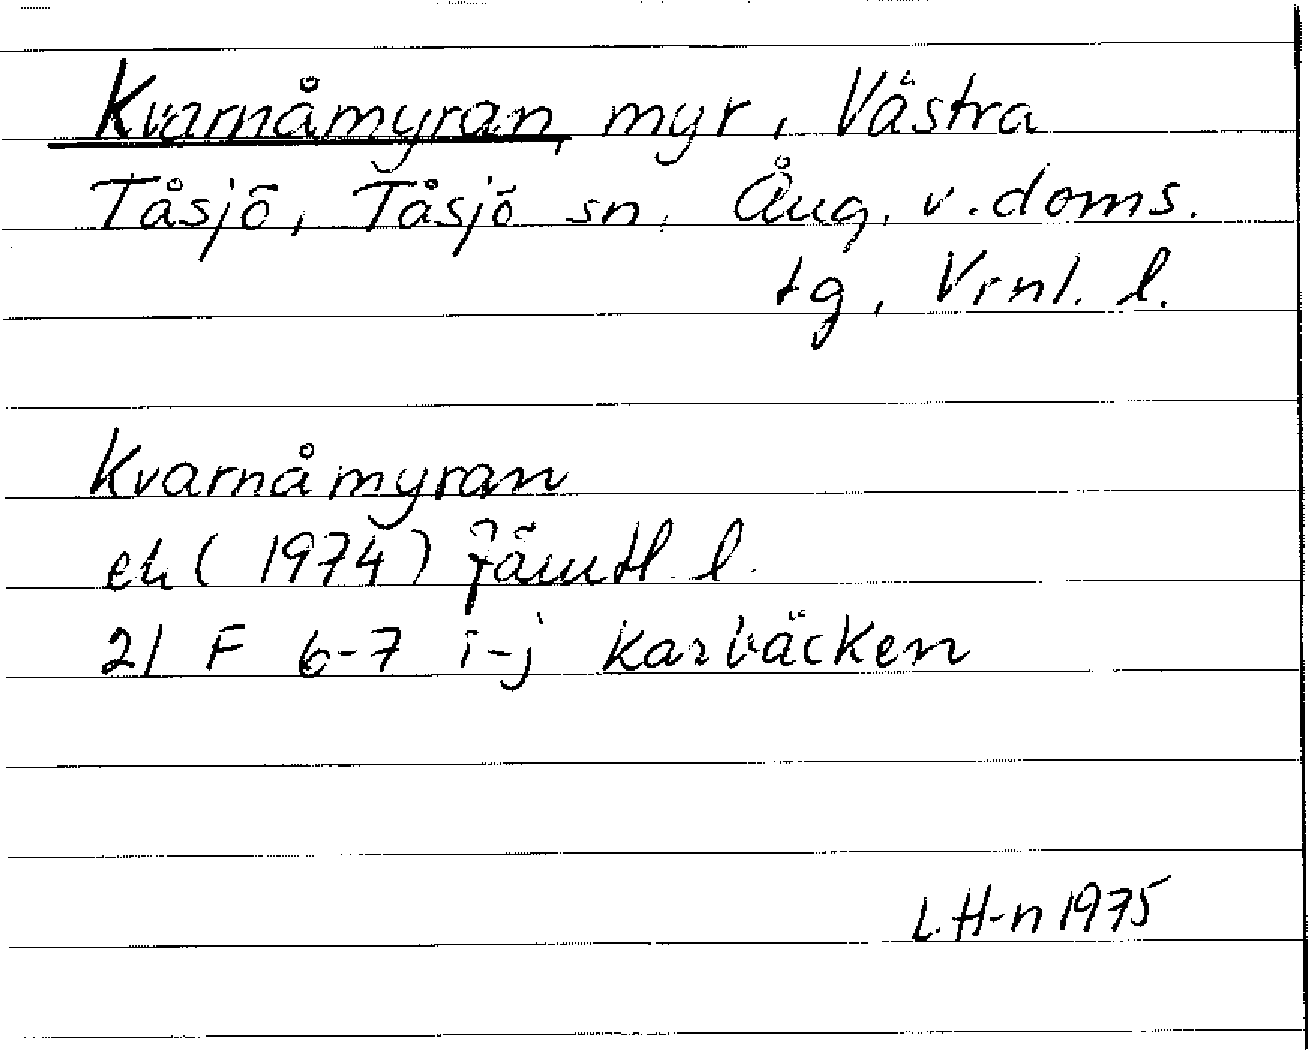 Kvarnåmyran, myr, Västra
Tåsjö, Tåsjö sn, Ång. v. doms.
tg, Vrnl. l.
Kvarnåmyran
ek (1974) Jämtl. l.
21 F 6-7 i-j Karbäcken
L. H-n 1975